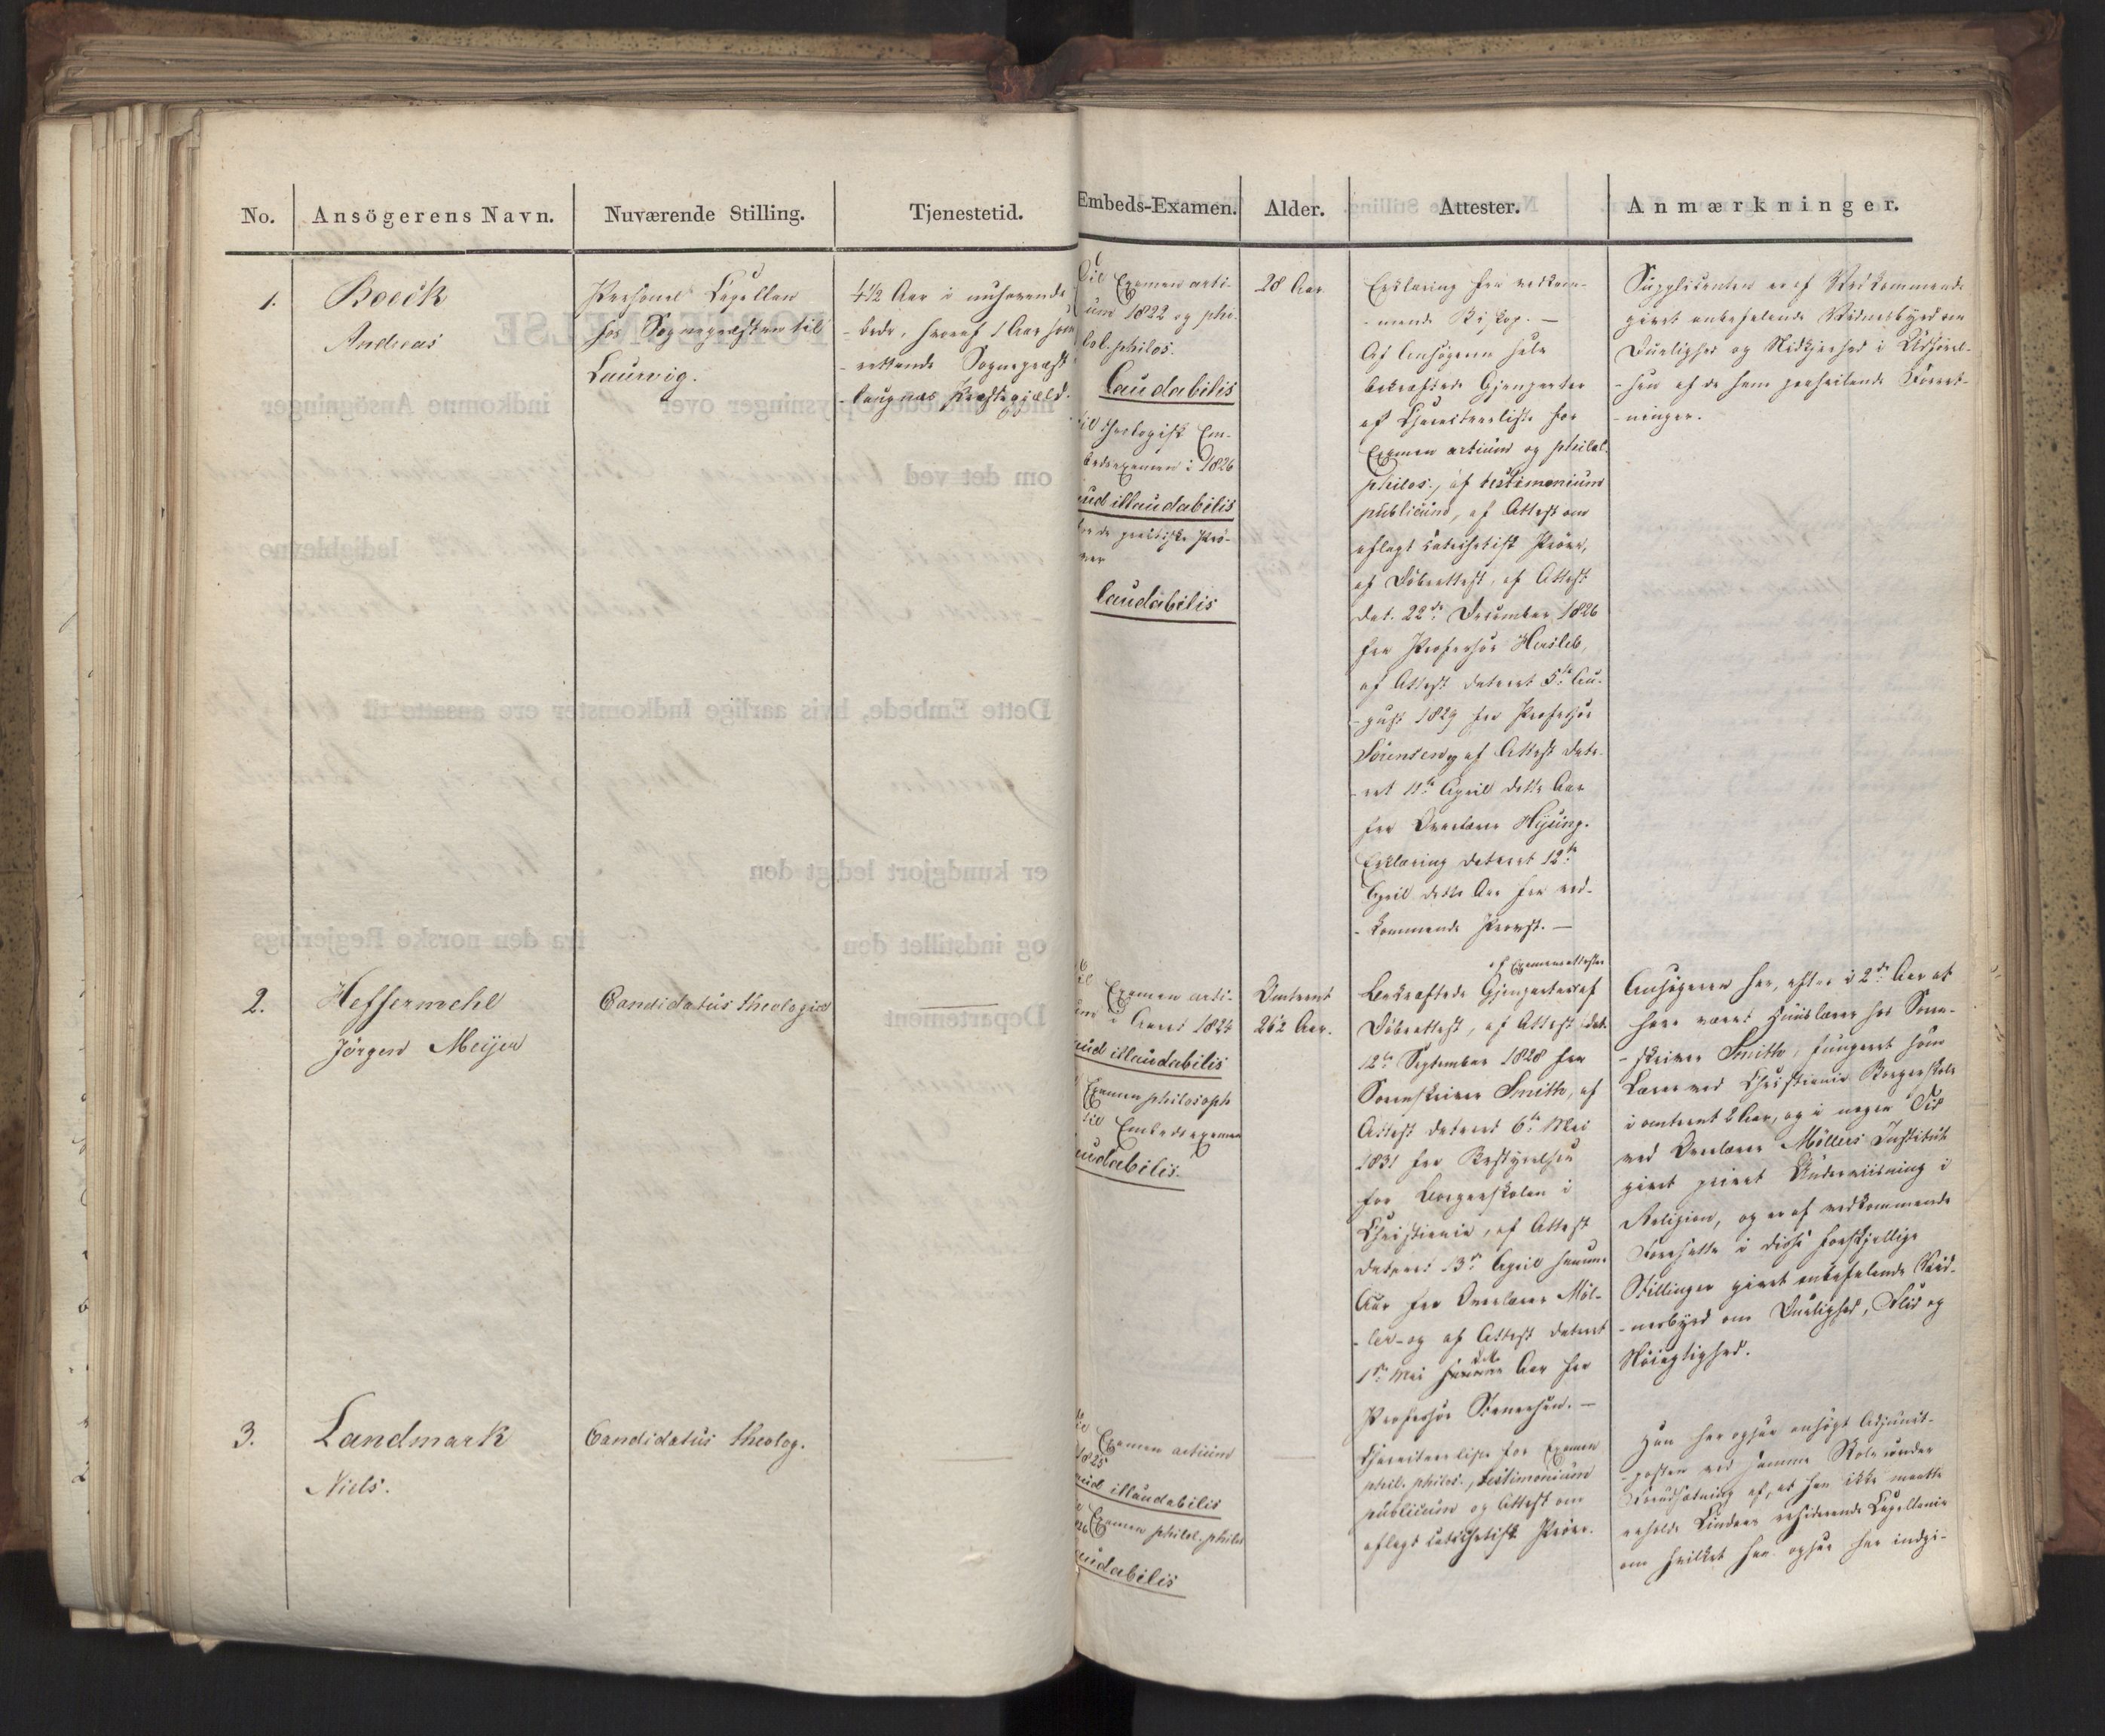 No.
Ansögerens Navn.
Nuværende Stilling.
Tjenestetid.
Embeds-Examen.
Alder.
Attester.
Anmærkninger.
1.
Boeck
Andreas
Personel Capellan
hos Sognepræsten til
Laurvig.
4 1/2 Aar i nuhavende
-bede, hvoraf 1 Aar som
Sognepræst
Præstegjæld.
Til Examen arti-
um 1822 og phi-
lol. philos.
Laudabilis
til theologisk Em-
bedsexamen i 1826
aud illaudabilis
for de practiske Prö-
ver
laudabilis
28 Aar
Erklæring fra vedkom-
-mende Biskop. —
Af Ansögeren selv
bekræftede Gjenparter
af Characteerliste for
Examen artium og philol.
philos., af testimonium
publicum, af Attest om
aflagt catechetisk Pröve,
af Döbeattest, af Attest
dat. 22de December 1826
fra Professor Hersleb,
af Attest dateret 5te Au-
-gust 1829 fra Professor
Sörensen og af Attest date-
-ret 11te April dette Aar
fra Overlærer
Erklæring dateret 12te
April dette Aar fra ved-
-kommende Provst. —
Supplicanten er af Vedkommende
givet anbefalende Vidnesbyrd om
Duelighed og Nidkjerhed i Udförel-
-sen af de ham paahvilende Forret-
-ninger.
2.
Heffermehl
Jörgen Meyer
Candidatus theologiæ
Til Examen arti-
um i Aaret 1824
aud illaudabilis
Examen philosoph
til Embedsexamen
audabilis.
Omtrent
26 1/2 Aar.
af Examensattester
Bekræftede Gjenparter af
Döbeattest, af Attest dat.
12te September 1828 fra
Sorenskriver Smith, af
Attest dateret 6te Mai
1831 fra Bestyrelsen
for Borgerskolen i
Christiania, af Attest
dateret 13de April samme
Aar fra Overlærer Möl-
-ler og af Attest dateret
1ste Mai samme dette Aar fra
Professor Stenersen. —
Ansögeren har, efter i 2de Aar at
have været Huuslærer hos Soren-
-skriver Smith, fungeret som
Lærer ved Christiania Borgerskole
i omtrent 2 Aar, og i nogen Tid
ved Overlærer Möllers Institut
givet privat Underviisning i
Religion, og er af vedkommende
Foresatte i disse forskjellige
Stillinger givet anbefalende Vid-
-nesbyrd om Duelighed, Flid og
Nöiagtighed.
3.
Landmark
Niels.
Candidatus theolog.
Examen artium
1825
aud illaudabilis
Examen philol. philos
audabilis
Characteerliste for Examen
phil. philos., testimonium
publicum og Attest om
aflagt catechetisk Pröve.
Han har ogsaa ansögt Adjunct-
-posten ved samme Skole under
Forudsætning af, at han ikke maatte
erholde residerende Capellanie
om hvilket han ogsaa har indgi-